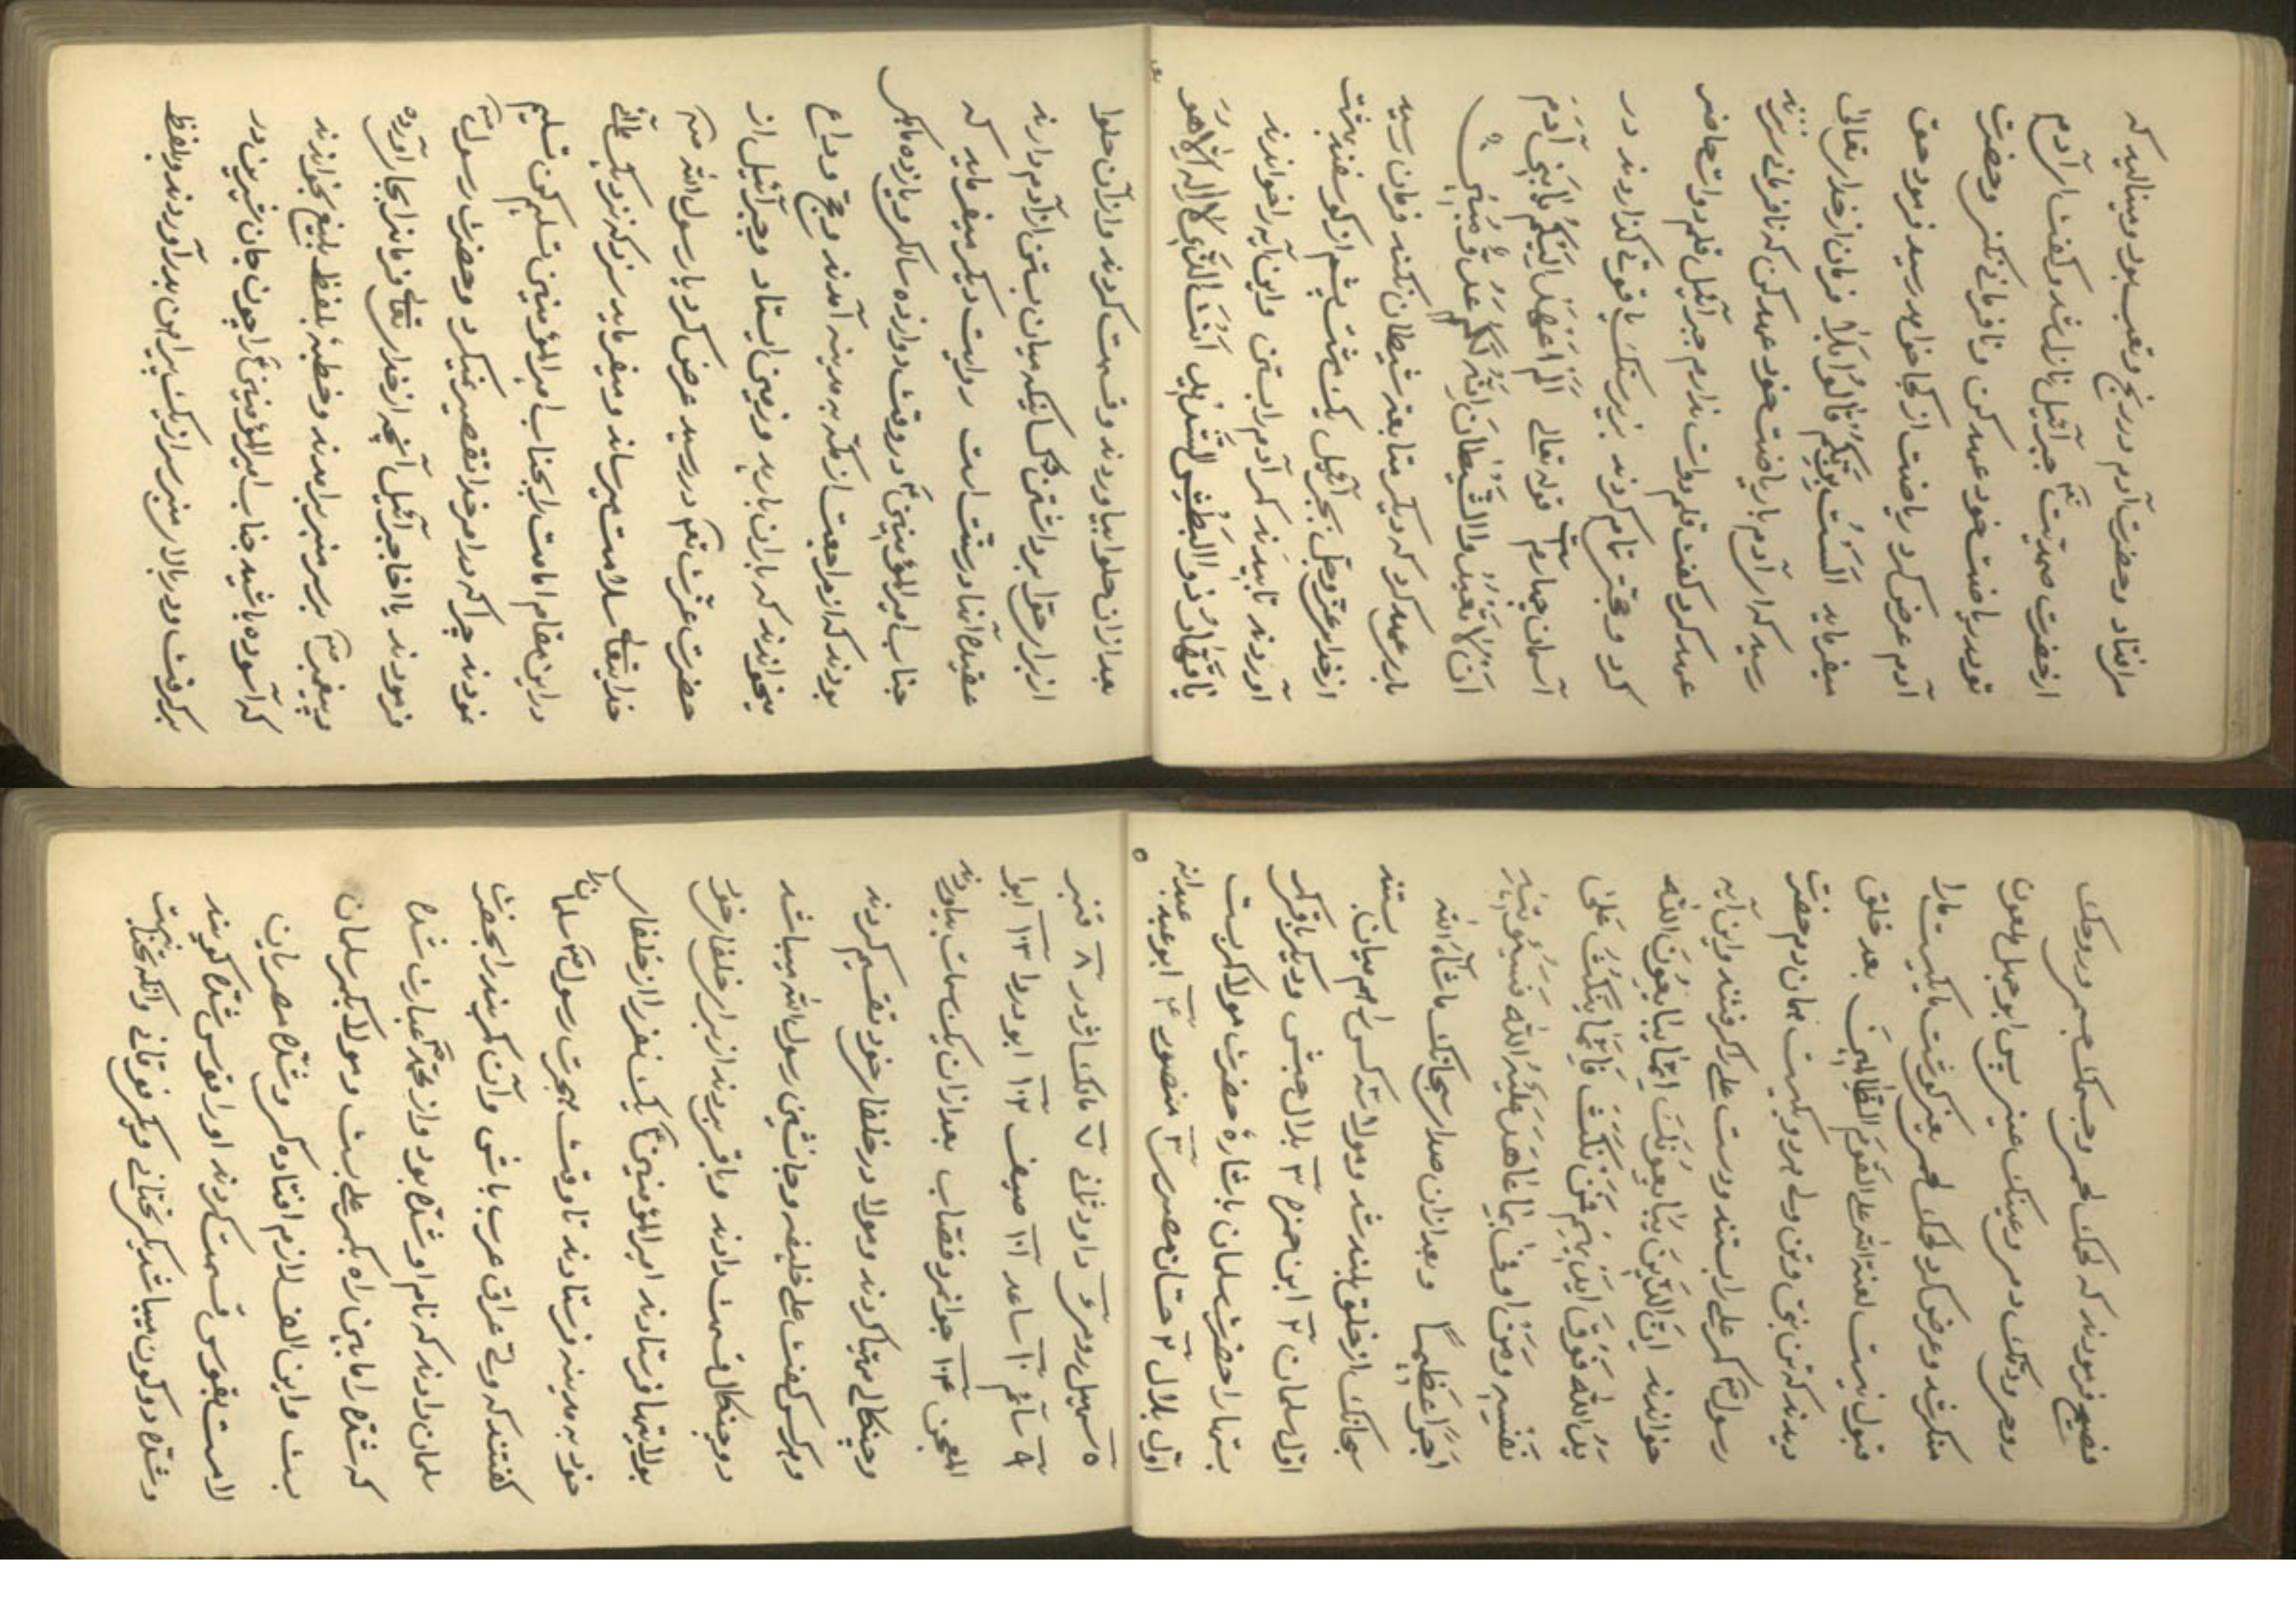 مرافتاد و حضرت آدم در رنج و تعب بود و مینالید که
از حضرت صمدیت جبرآئیل نازل شد و گفت ای آدم
تو در ریاضت خود عهد کن و نافرمانی مکن و حضرت
آدم عرض کرد ریاضت از کجا خواهد رسید فرمود حق
میفرماید الست بربکم قالوا بلی فرمان از خدای تعالی
رسید که ای آدم با ریاضت خود عهد کن که نافرمانی سر نزند
عهد کرد و گفت قلم دوات ندارم جبرآئیل قلم دوات حاضر
کرد و حجت تمام کردند بزیر سنک یاقوتی گذاردند در
آسمان چهارم قوله تعالی الم اعهد الیکم یا بنی آدم
ان لا تعبدوا الشیطان انه لکم عدو مبین
بار عهد کرد که دیگر متابعه شیطان نکند فرمان رسید
از خدای عز و جل بجبرآئیل یک مشت پشم از گوسفند بهشت
آوردند تابیدند کمر آدم را بستن و این آیه را خواندند
یا قهار ذو البطش الشدید انت الذی لا اله الا هو
بعد ازان حلوا بیاوردند و قسمت کردند و از آن حلوا
از برای حوا برداشتن کسانیکه میان بستن از آدم دارند
عقیده آنها درست است روایت دیگر میفرماید که
جناب امیرالمؤمنین در وقت دوازده سالگی و یازده ماهگی
بودند که از مراجعت از مکه به مدینه آمدند و حج وداع
میخواندند که باران بارید و زمین ایستاد و جبرآئیل از
حضرت عزت در رسید عرض کرد یا رسول الله
خدایتعالی سلامت میرساند و میفرماید سر و کز نزدیکی علی
در این مقام امامت را بجناب امیرالمؤمنین تسلیم کن تسلیم
نمودند چرا که در امر خدا تقصیر نمیکرد و حضرت رسول
فرمودند یا اخا جبرآئیل آنچه از خدای تعالی فرماید را بجا آورده
و پیغمبر بر سر منبر برآمدند و خطبه بلفظ بلیغ بخواندند
که آسوده باشید جناب امیرالمؤمنین را چون جان شیرین در
برگرفت و در بالای منبر سر از یک پیراهن بدر آوردند و بلفظ
فصیح فرمودند که لحمک لحمی و جسمک جسمی و روحک
روحی و دمک دمی و عینک عینی پس ابوجهل ملعون
منکر شد و عرض کرد لحمک لحمی یعنی گوشت ما یکیست ما را
قبول نیست لعنة الله علی القوم الظالمین بعد خلق
دیدند که تن بتن و تن ولی برد و یکیست همان دم حضرت
رسول کمر علی را بستند و دست علی را گرفتند و این آیه
خواندند ان الذین یبایعونک انما یبایعون الله
ید الله فوق ایدیهم فمن نکث فانما ینکث علی
نفسه و من اوفی بما عاهد علیه الله فسیؤتیه
اجرا عظیما و بعد ازان صدای سبحانک ماشاء الله
سبحانک از خلق بلند شد و مولا نه کس را هم میان بستند
اول سلمان ۲ ابن حمزه ۳ بلال حبشی و دیگر باقر که
بستها را حضرت سلمان باشاره حضرت مولا کرست
اول بلال ۲ حسّان مصری ۳ منصور ۴ ابوعبیده
۵ سهیل رومی ۶ داود ثانی ۷ مالک اژدر ۸ قنبر
۹ سآئم ۱۰ ساعد ۱۱ صیف ۱۲ ابو دردا ۱۳ ابوا
المعجن ۱۴ جوانمرد قصاب بعد ازان یک سات بیاوردند
و جینکالی مهیّا کردند و مولا در خلفای خود تقسیم کردند
و هر کس گفت علی خلیفه و جانشین رسول الله میباشد
دو جینکال قسمت دادند و باقی بردند از برای خلفای خود
بولایتها فرستادند امیرالمؤمنین یک نفر را از خلفای
خود به مدینه فرستادند تا وقت هجرت رسول سلمان را
گفتند که وی عراق عرب باش و آن کمربند را بحضرت
سلمان دادند که نام او شدّه بود و از محمد عبارت شده
که شدّه را مابین راه بکمر علی بست و مولا بکمر سلمان
بست و این الف لازم افتاده کمر و شدّه مصریان
لامست بقوس قسمت کردند او را قوس شدّه گویند
و شدّه دو کون میباشد یکی تختانی و یکی فوقانی و آنکه تختانیست